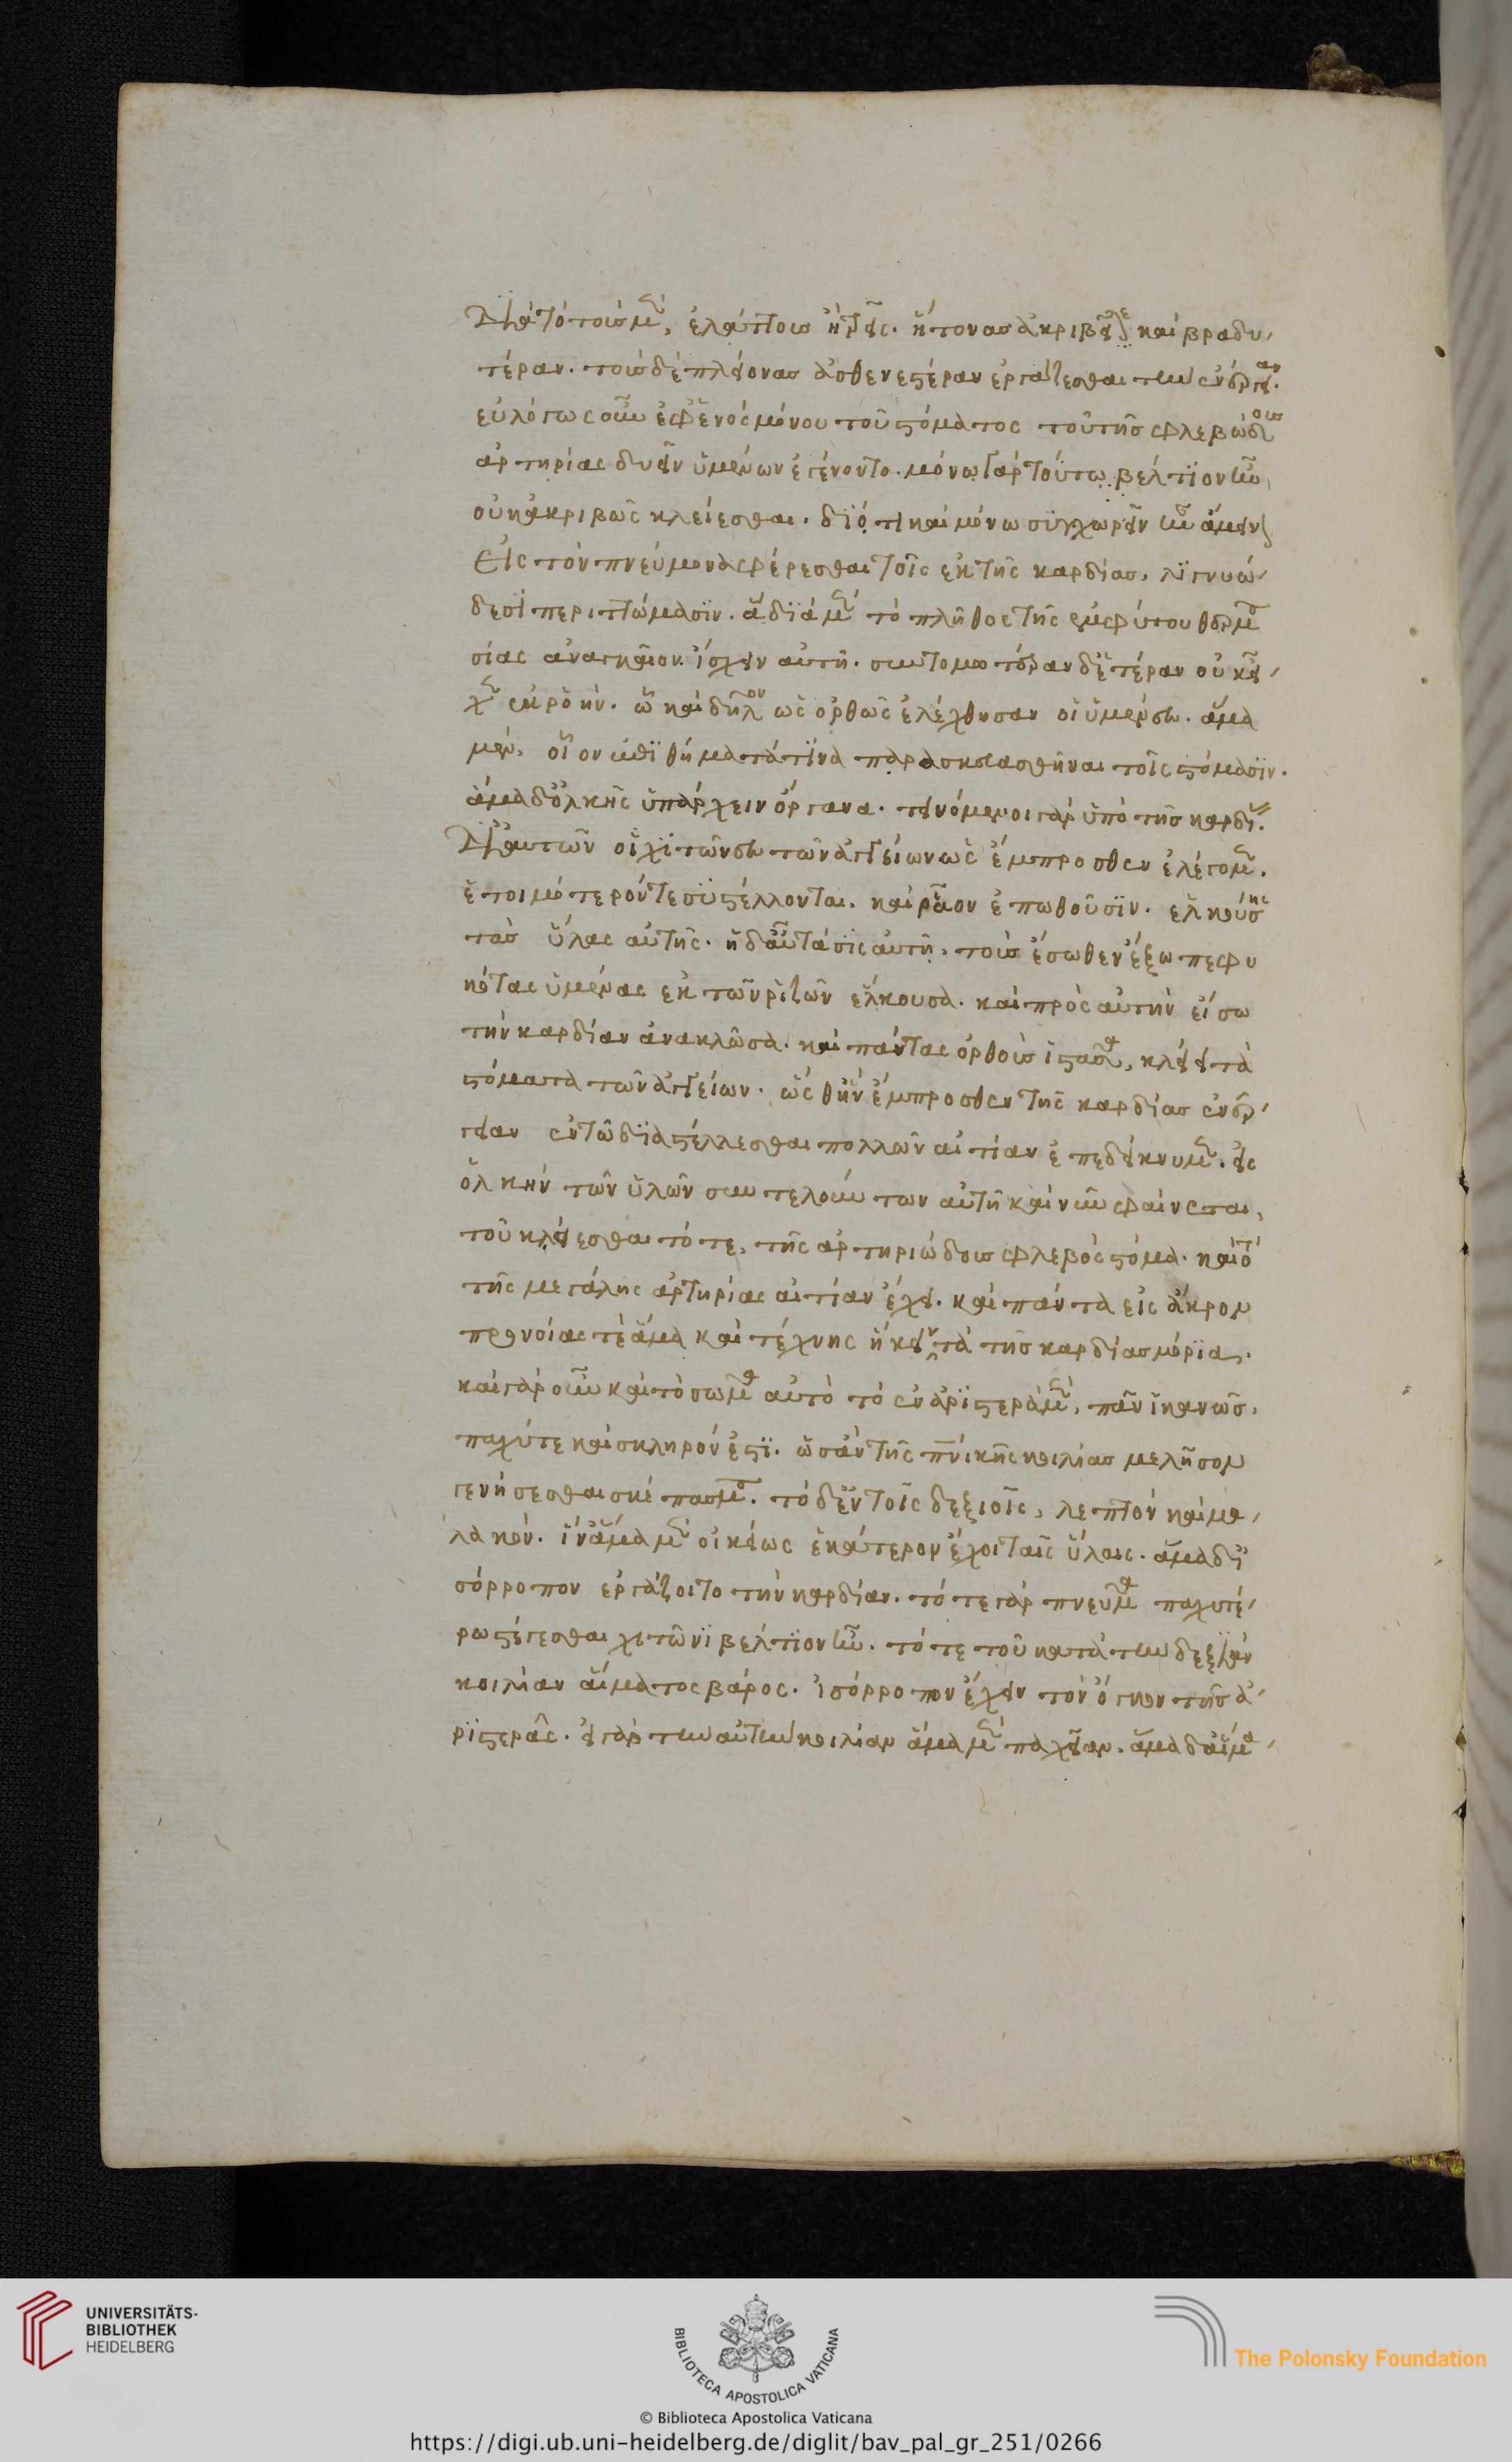 διὰ τὸ τοὺς μὲν, ἐλάττους ἢ τρεῖς. ἧττον ἀσ ἀκριβῆ τε καὶ βραδυ
τέραν. τοὺς δὲ πλείονας ἀσθενεστέραν ἐργάζεσθαι τὴν ἐνέργειαν.
εὐλόγως οὖν ἐφ' ἑνὸς μόνου τοῦ στόματος τοῦ τῆς φλεβώδους
ἀρτηρίας δυεῖν ὑμένων ἐγένοντο. μόνῳ γὰρ τούτῳ βέλτιον ἦν
οὐκ ἀκριβῶς κλείεσθαι. διότι καὶ μόνω συγχωρεῖν ἦν ἄμεινον
εἰς τὸν πνεύμονα φέρεσθαι τοῖς ἐκ τῆς καρδίας, λιγνυώ
δεσι περιττώμασιν. ἃ διὰ μὲν τὸ πλῆθος τῆς ἐμφύτου θερμα
σίας ἀναγκαῖον ἴσχειν αὐτῇ. συντομωτέραν δ' ἑτέραν οὐκ εἶ
χεν ἐκροήν. ᾧ καὶ δῆλον ὡς ὀρθῶς ἐλέχθησαν οἱ ὑμένες. ἅμα
μὲν, οἷον ἐπιθήματά τινα παρασκευασθῆναι τοῖς στόμασιν.
ἅμα δ' ὁλκῆς ὑπάρχειν ὄργανα. τεινόμενοι γὰρ ὑπὸ τῆς καρδίας.
δι' αὐτῶν οἱ χιτῶνες τῶν ἀγγείων ὡς ἔμπροσθεν ἐλέγομεν.
ἑτοιμότερόν τε συστέλλονται. καὶ ῥᾷον ἐπωθοῦσιν. ἑλκούσης
τὰς ὕλας αὐτῆς. ἡ δ' αὖ τάσις αὐτη. τοὺς ἔσωθεν ἔξω πεφυ
κότας ὑμένας ἐκ τῶν ῥιζῶν ἕλκουσα. καὶ πρὸς αὐτὴν εἴσω
τὴν καρδίαν ἀνακλῶσα. καὶ πάντας ὀρθοὺς ἱστᾶσα, κλείει τὰ
στόματα τῶν ἀγγείων. ὥσθ' ἣν ἔμπροσθεν τῆς καρδίας ἐνέρ
γειαν ἐν τῷ διαστέλλεσθαι πολλῶν αἰτίαν ἐπεδείκνυμεν. εἰς
ὁλκὴν τῶν ὑλῶν συντελούντων αὐτῇ καὶ νῦν φαίνεται,
τοῦ κλείεσθαι τό τε, τῆς ἀρτηριώδους φλεβὸς στόμα. καὶ τὸ
τῆς μεγάλης ἀρτηρίας αἰτίαν ἔχει. καὶ πάντα εἰς ἄκρον
προνοίας τὲ ἅμα καὶ τέχνης ἥκειν τὰ τῆς καρδίας μόρια.
καὶ γὰρ οὖν καὶ τὸ σῶμα αὐτὸ τὸ ἐν ἀριστερᾷ μὲν, πᾶν ἱκανῶς,
παχύ τε καὶ σκληρόν ἐστι. ὡς ἂν τῆς πνικῆς κοιλίας μελῆσον
γενήσεσθαι σκέπασμα. τὸ δ' ἐν τοῖς δεξιοῖς, λεπτὸν καὶ μα
λακόν. ἵν' ἅμα μὲν οἰκείως ἑκάτερον ἔχοι ταῖς ὕλαις. ἅμα δ' ἰ
σόρροπον ἐργάζοιτο τὴν καρδίαν. τό τε γὰρ πνεῦμα παχυτέ
ρῳ στέγεσθαι χιτῶνι βέλτιον ἦν. τό τε τοῦ κατὰ τὴν δεξιὰν
κοιλίαν αἵματος βάρος. ἰσόρροπον ἔχειν τὸν ὄγκον τῆς ἀ
ριστερᾶς. εἰ γὰρ τὴν αὐτὴν κοιλίαν ἅμα μὲν παχεῖαν. ἅμα δ' αἵμα
UNIVERSITÄTS-
BIBLIOTHEK
HEIDELBERG
BIBLIOTECA APOSTOLICA VATICANA
The Polonsky Foundation
© Biblioteca Apostolica Vaticana
https://digi.ub.uni-heidelberg.de/diglit/bav_pal_gr_251/0266